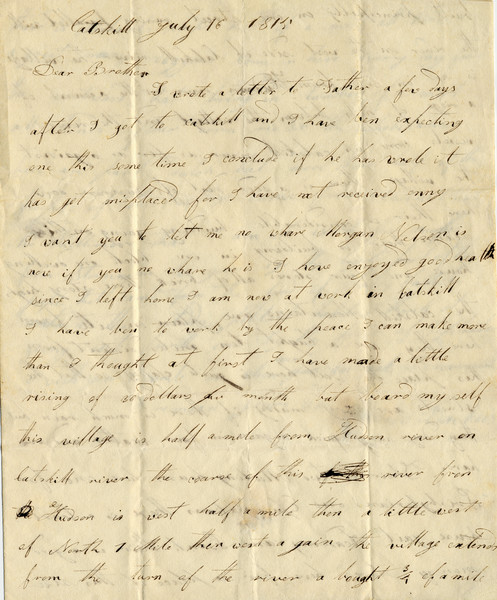 Catskill July 16 1815
Dear Brother
I wrote a letter to Father a few days
after I got to catskill and I have ben expecting
one this some time I conclude if he has wrote it
has got misplaced for I have not received enny
I want you to let me no whare Morgan Nelson is
now if you no whare he is I have enjoyed good health
since I left home I am now at work in Catskill
I have ben to work by the peace I can make more
than I thought at first I have made a little
rising of dollars per month but board my self
this village is half a mile from Hudson river on
Catskill river the coarse of this river from
Hudson is west half a mile then a little west
of North 1 Mile then west a gain the village extends
from the turn of the river a bought 3/4 of a mile